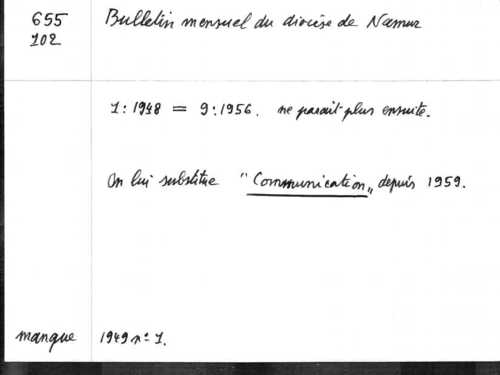 655
102
Bulletin mensuel du diocèse de Namur
1:1948 = 9:1956. ne parait plus ensuite.
On lui substitue "Communication„ depuis 1959.
manque 1949 n° 1.